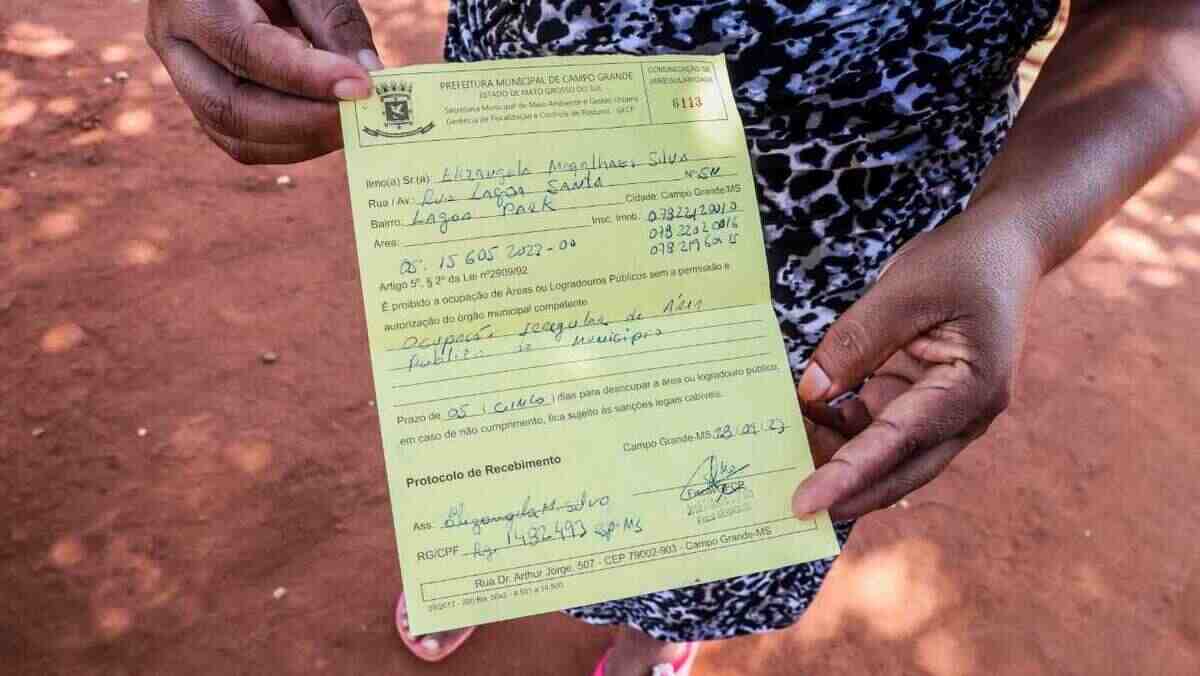 PREFEITURA MUNICIPAL DE CAMPO GRANDE
ESTADO DE MATO GROSSO DO SUL
Secretaria Municipal de Meio Ambiente e Gestão Urbana
Gerência de Fiscalização e Controle de Posturas - GFCP
COMUNICAÇÃO DE
IRREGULARIDADE
6113
Ilmo(a) Sr.(a): Elizangela Magalhaes Silva
Rua / Av.: Rua Lagoa Santa Nº SN
Bairro: Lagoa Park Cidade: Campo Grande-MS
Área: Insc. Imob.
05.15605 2022-00
Artigo 5º, § 2º da Lei nº2909/92
É proibido a ocupação de Áreas ou Logradouros Públicos sem a permissão e
autorização do órgão municipal competente.
Ocupação Irregular de Área
Publica do Municipio
Prazo de 05 (cinco) dias para desocupar a área ou logradouro público,
em caso de não cumprimento, fica sujeito às sanções legais cabíveis.
Campo Grande-MS
Protocolo de Recebimento
Ass: Elizangela M. Silva
RG/CPF Rg. 1482493 SP-MS
Rua Dr. Arthur Jorge, 507 - CEP 79002-903 - Campo Grande-MS